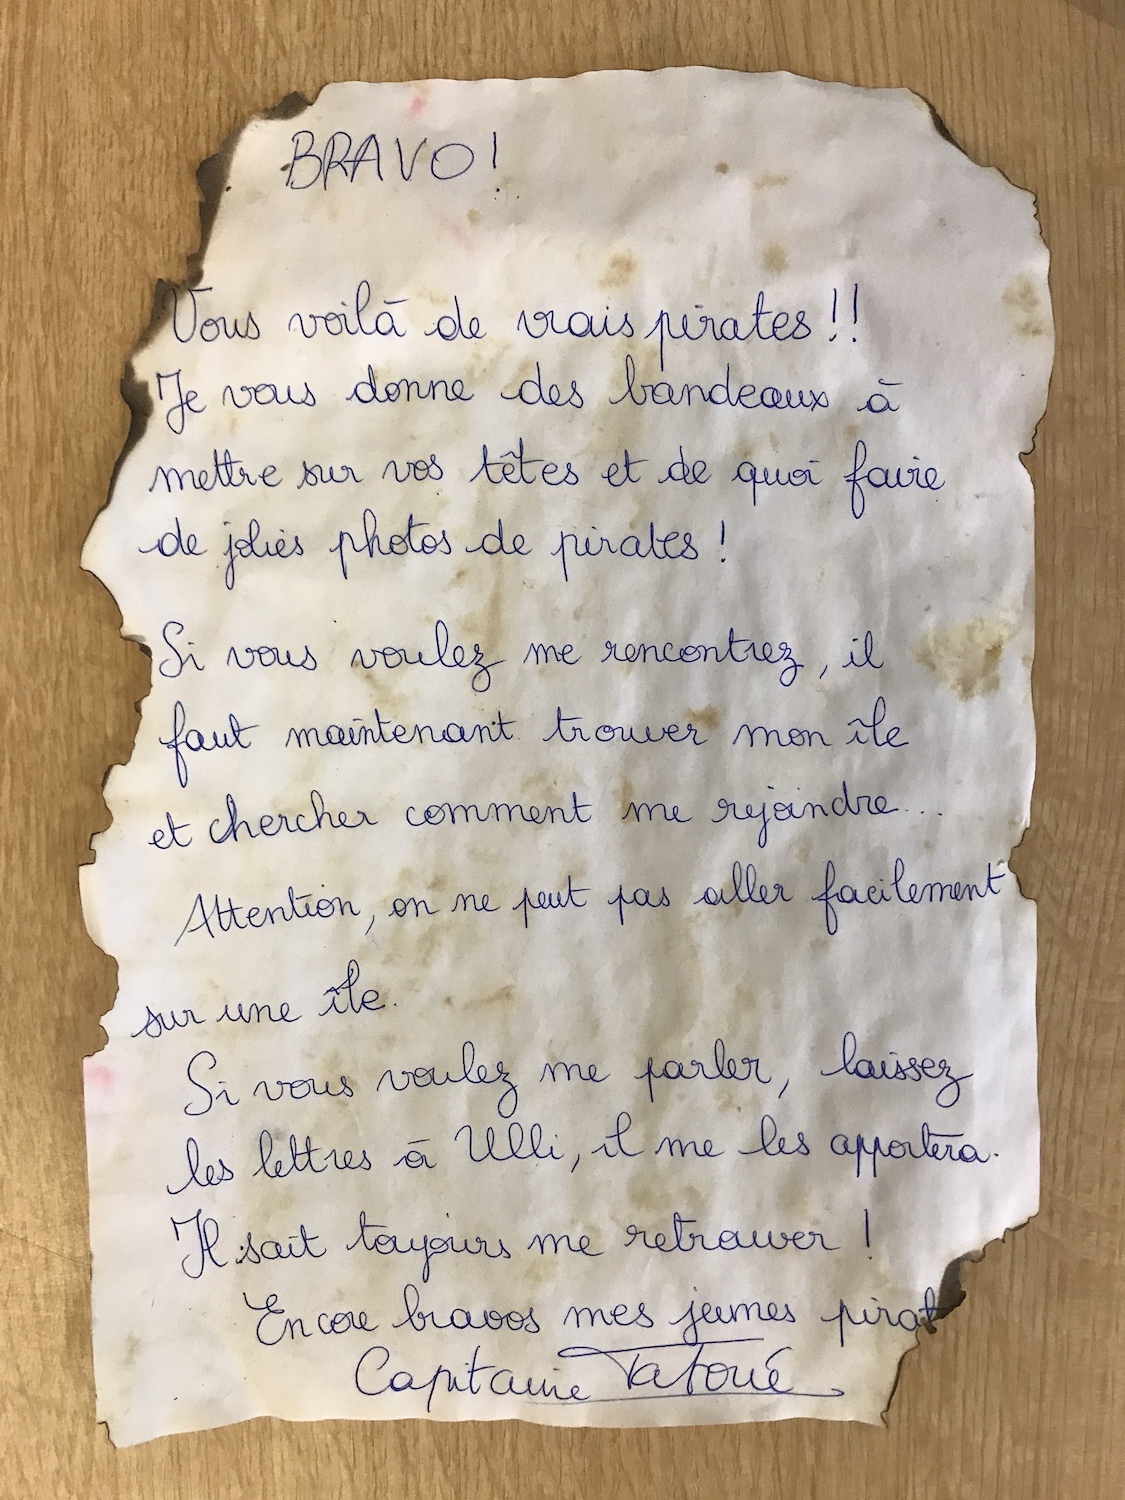 BRAVO!
Vous voilà de vrais pirates!!
Je vous donne des bandeaux à
mettre sur vos têtes et de quoi faire
de jolies photos de pirates !
Si vous voulez me rencontrez, il
faut maintenant trouver mon île
et chercher comment me rejoindre...
Attention, on ne peut pas aller facilement
sur une île.
Si vous voulez me parler, laissez
les lettres à Ulli, il me les apportera.
Il sait toujours me retrouver !
Encore bravos mes jeunes pirat
Capitaine Tatoué